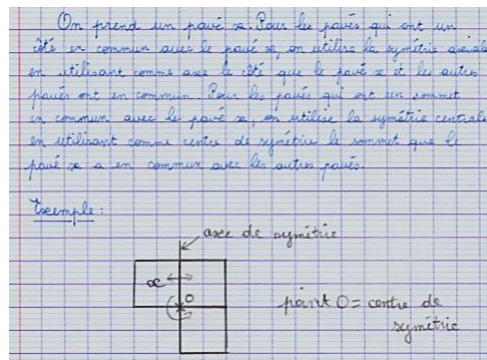 On prend un pavé x. Pour les pavés qui ont un
côté en commun avec le pavé x, on utilise la symétrie axiale
en utilisant comme axe le côté que le pavé x et les autres
pavés ont en commun. Pour les pavés qui ont un sommet
en commun avec le pavé x, on utilise la symétrie centrale
en utilisant comme centre de symétrie le sommet que le
pavé x a en commun avec les autres pavés.
Exemple :
axe de symétrie
x
O
point O = centre de
symétrie